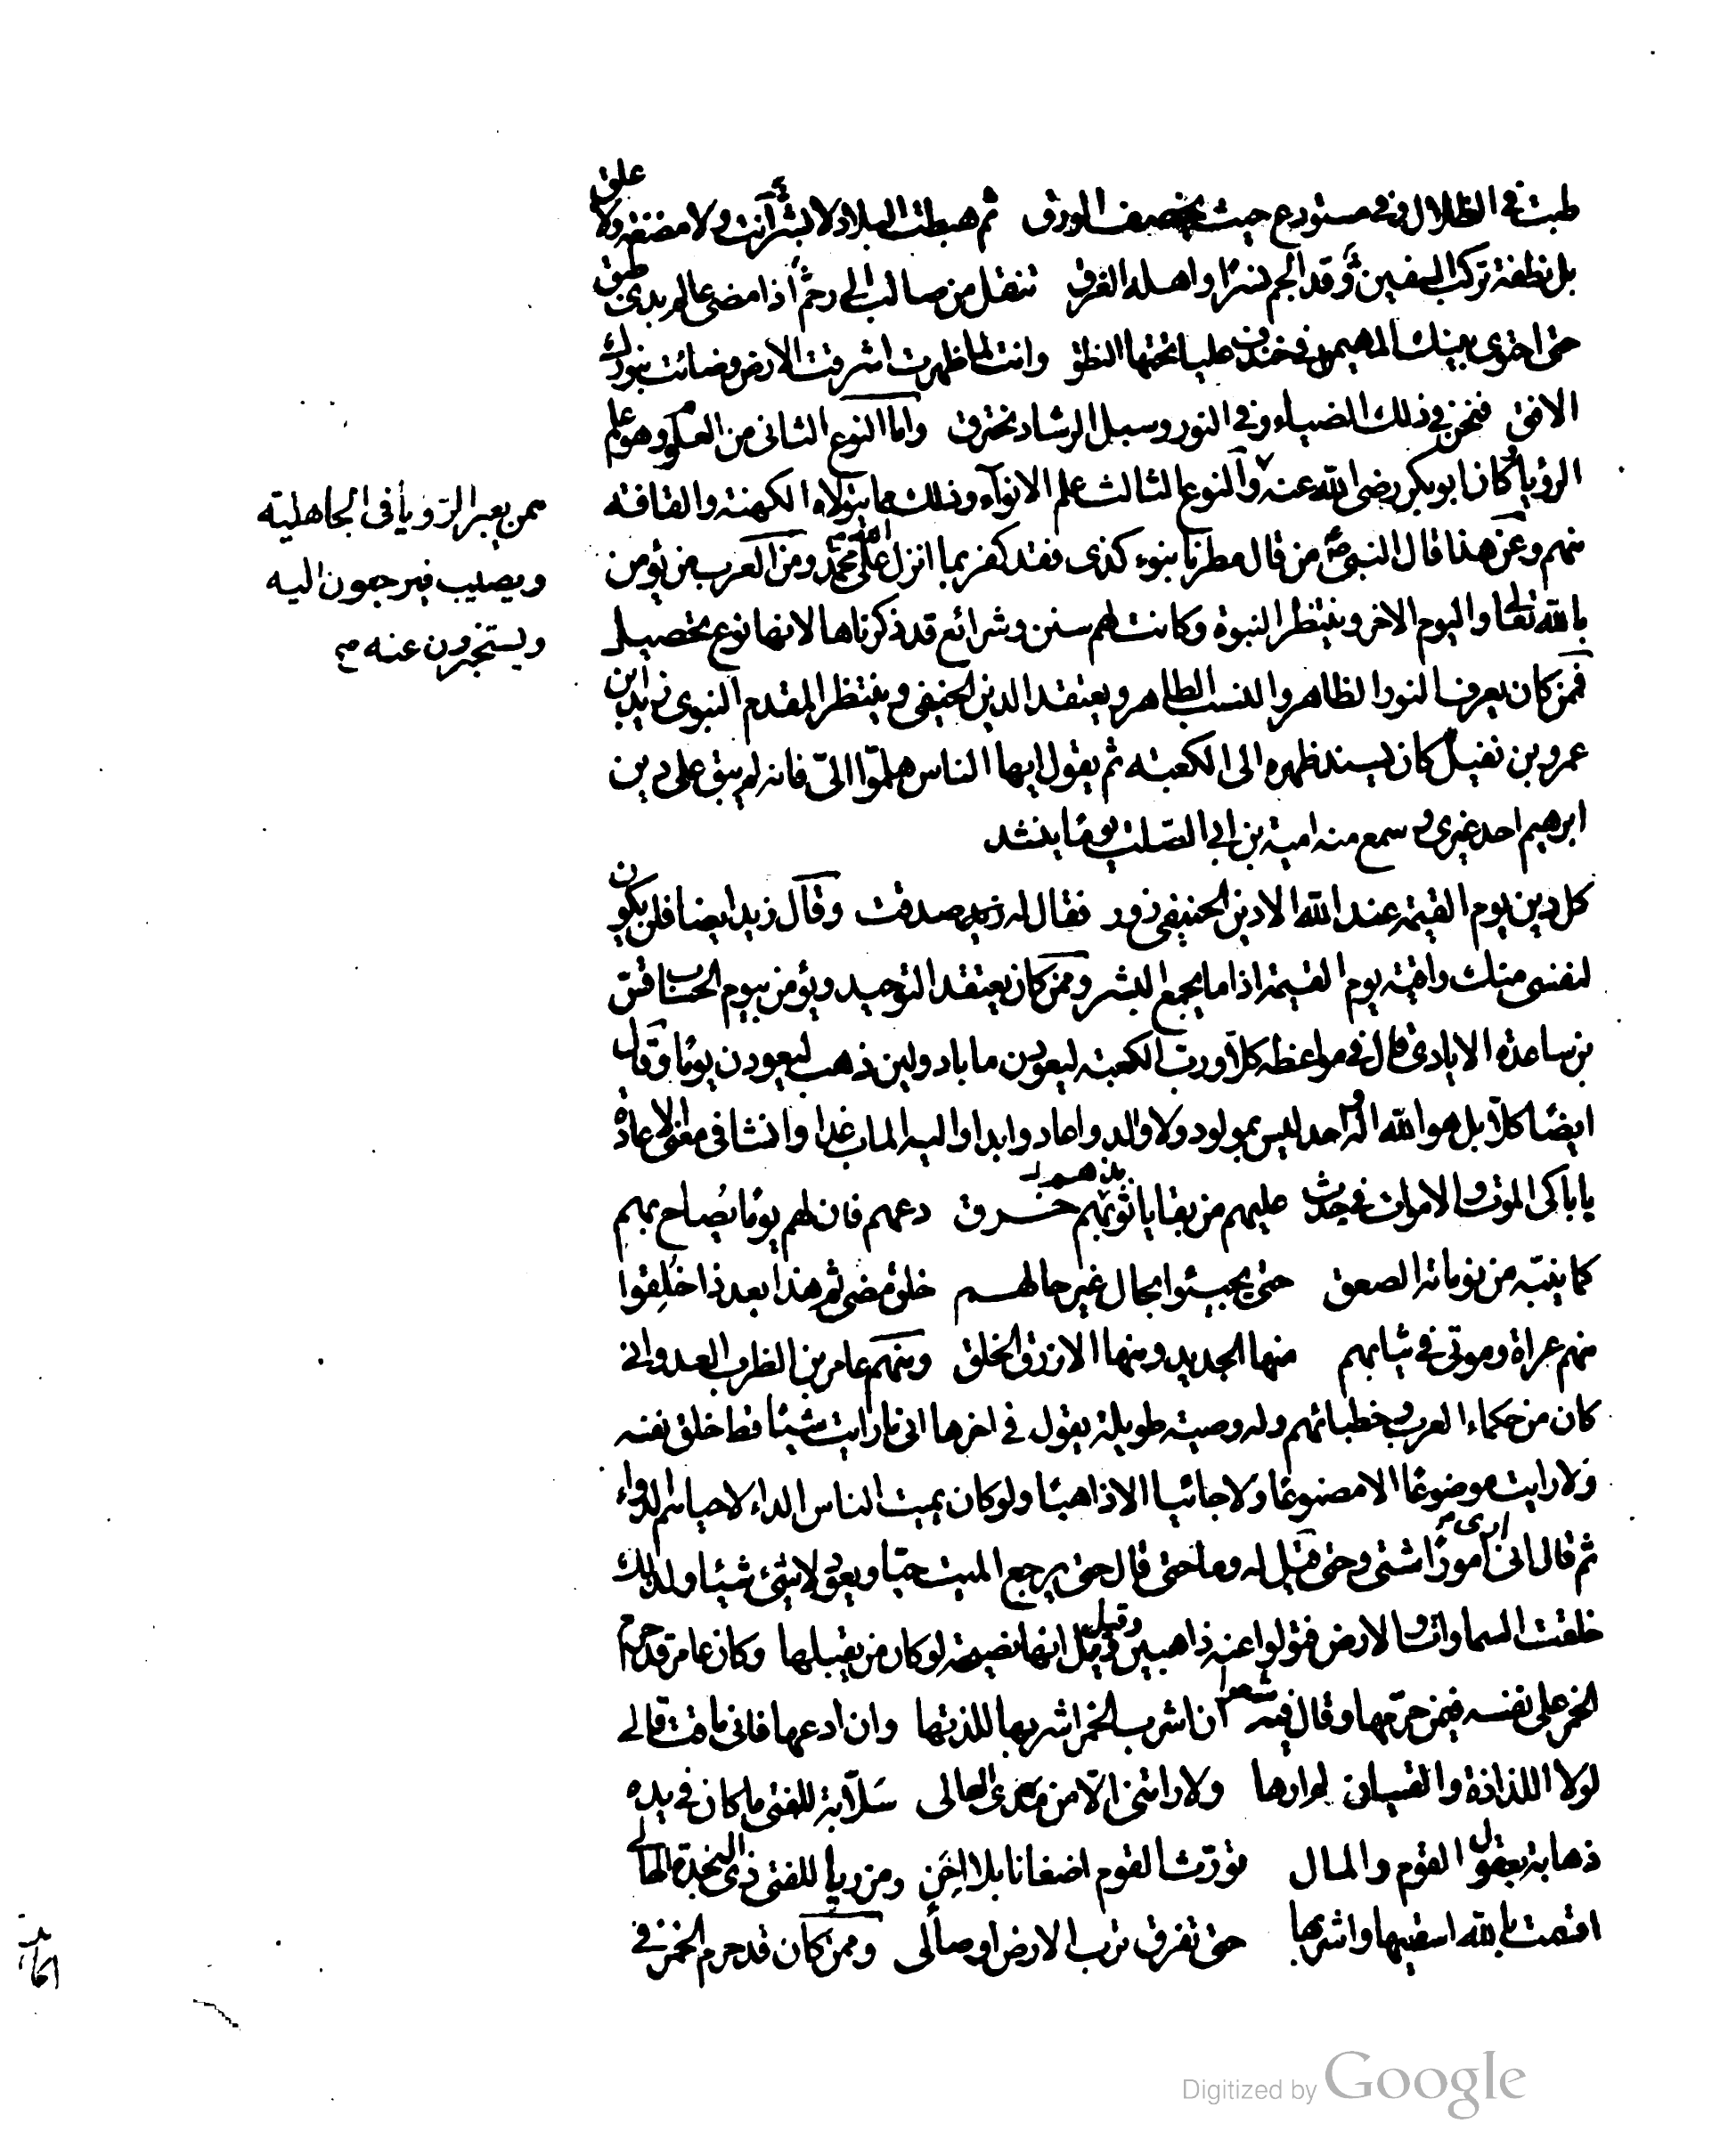 طبت في الظلال وفي مستودع حيث يخصف الورق ثم هبطت البلاد لا بشر أنت ولا مضغة ولا علق
بل نطفة تركب السفين وقد الجم نسرًا واهله الغرق تنقل من صالب الى رحم اذا مضى عالم بدى طبق
حتى احتوى بيتك المهيمن في خندف عليا تحتها النطق وانت لما ظهرت اشرقت الارض وضائت بنورك
الافق فنحن في ذلك الضياء وفي النور وسبل الرشاد نخترق واما النوع الثاني من العلوم وهو علم
الرؤيا كان ابو بكر رضى الله عنه والنوع الثالث علم الانوآء وذلك مما يتولاه الكهنة والقافة
ممن يعبر الرؤيا في الجاهلية
ويصيب فيرجعون اليه
ويستخبرون عنه صح
منهم وعن هذا قال النبي ص من قال مطرنا بنوء كذى فقد كفر بما انزل الله على محمد ومن العرب من يؤمن
بالله تعالى واليوم الاخر وينتظر النبوة وكانت لهم سنن وشرائع قد ذكرناها لانها نوع تحصيل
فمن كان يعرف النور الظاهر والنسب الطاهر ويعتقد الدين الحنيفى وينتظر المقدم النبوى زيد ابن
عمرو بن نفيل كان يسند ظهره الى الكعبة ثم يقول ايها الناس هلمّوا الىّ فانه لم يبق على دين
ابرهيم احد غيرى و سمع منه امية بن ابى الصّلت يومًا ينشد
كل دين يوم القيمة عند الله الا دين الحنيفى زور فقال له زيد صدقت وقال زيد ايضا فلن يكون
لنفسى منك واقية يوم القيمة اذا ما يجمع البشر وممن كان يعتقد التوحيد ويؤمن بيوم الحساب قس
بن ساعدة الايادى قال في مواعظه كلا ورب الكعبة ليعودن ما باد ولين ذهب ليعودن يومًا وقال
ايضًا كلا بل هو الله اله واحد ليس بمولود ولا والد واعاد وابدا واليه الماب غدا وانشا في معنى الاعادة
يا باكى الموت والاموات في جدث عليهم من بقايا ثوبهم خرق دعهم فان لهم يومًا يُصاح بهم
كما ينبّه من نوماته الصعق حتى يجيئوا بحال غير حالهم خلق مضى ثم هذا بعد ذا خُلِقوا
منهم عراة وموتى في ثيابهم منها الجديد ومنها الازرق الخلق ومنهم عامر بن الظرب العدوانى
كان من حكماء العرب وخطبائهم وله وصية طويلة يقول في اخرها انى ما رايت شيئا قط خلق نفسه
ولا رايت موضوعًا الا مصنوعًا ولا جائيا الا ذاهبًا ولو كان يميت الناس الداء لاحياهم الدواء
ثم قال انى ارى امورًا شتى وحتى قيل له وما حتى قال حتى يرجع الميت حيّا ويعود لا شئ شيئا ولذلك
خلقت السماوات والارض فتولوا عنه ذاهبين وقيل انها نصيحة لو كان من يقبلها وكان عامر قد حرم
الخمر على نفسه فيمن حرّمها وقال فيه شعرا ان اشرب الخمر اشربها للذتها وان ادعها فانى ماقت قالى
لولا اللذاذة والقيان لم ارها ولا راتنى الّا من مدى العالى سَلّابة للفتى ما كان في يده
ذهابة بعقول القوم والمال تورّث القوم اضغانا بلا احَن ومزريا للفتى ذى النجدة الحالى
اقسمت بالله اسقيها واشربها حتى تفرق ترب الارض اوصالى وممن كان قد حرم الخمر في
Digitized by Google